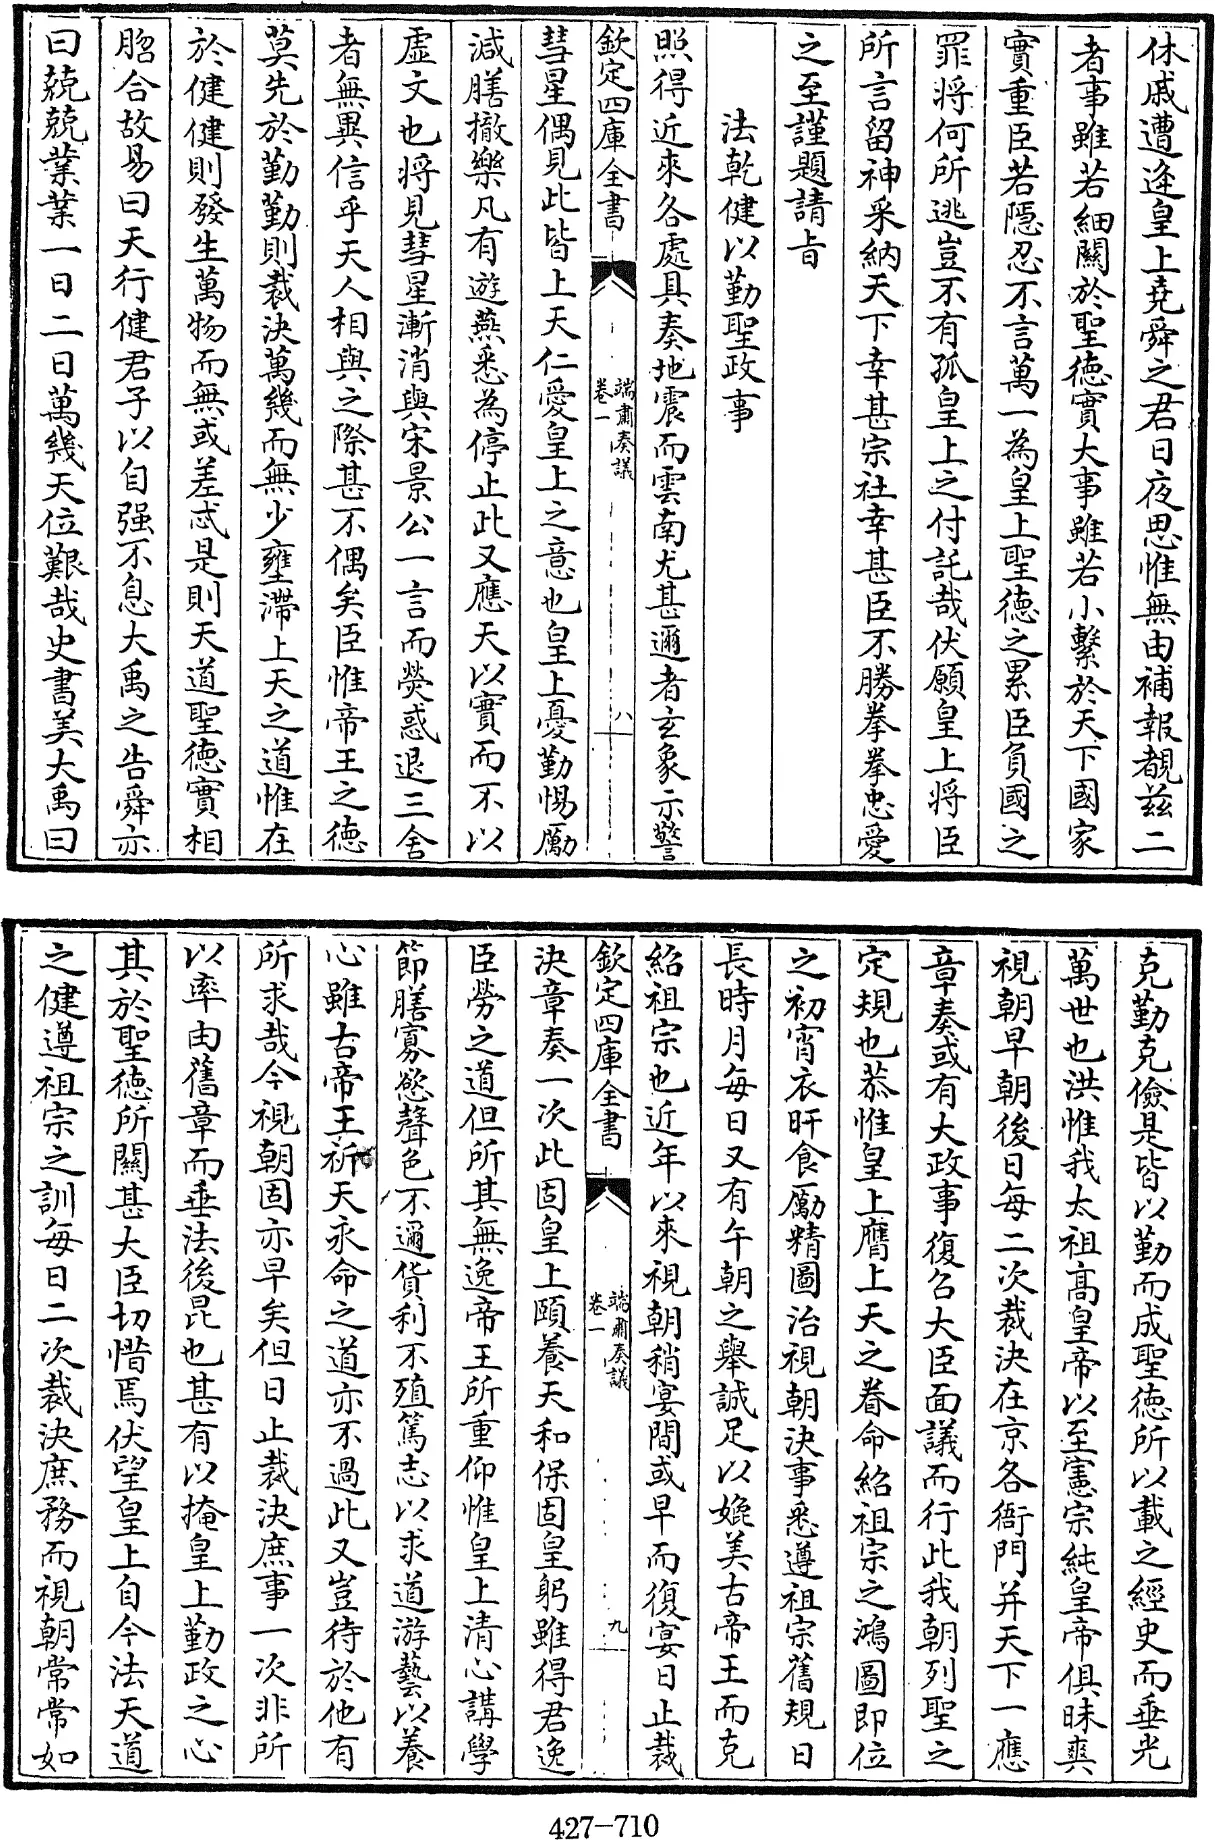 休戚遭逄皇上堯舜之君日夜思惟無由補報覩兹二
者事雖若細關於聖徳實大事雖若小繫於天下國家
實重臣若隠忍不言萬一為皇上聖徳之累臣負國之
罪將何所逃豈不有孤皇上之付託哉伏願皇上將臣
所言留神采納天下幸甚宗社幸甚臣不勝拳拳忠愛
之至謹題請㫖
法乾健以勤聖政事
照得近來各處具奏地震而雲南尤甚邇者玄象示警
欽定四庫全書
端肅奏議
卷一
八
彗星偶見此皆上天仁愛皇上之意也皇上憂勤惕厲
減膳撤樂凡有遊燕悉為停止此又應天以實而不以
虚文也將見彗星漸消與宋景公一言而熒惑退三舍
者無異信乎天人相與之際甚不偶矣臣惟帝王之徳
莫先於勤勤則裁決萬幾而無少壅滯上天之道惟在
於健健則發生萬物而無或差忒是則天道聖徳實相
脗合故易曰天行健君子以自强不息大禹之告舜亦
曰兢兢業業一日二日萬幾天位艱哉史書美大禹曰
克勤克儉是皆以勤而成聖徳所以載之經史而垂光
萬世也洪惟我太祖髙皇帝以至憲宗純皇帝俱昧爽
視朝早朝後日每二次裁決在京各衙門并天下一應
章奏或有大政事復召大臣面議而行此我朝列聖之
定規也恭惟皇上膺上天之眷命紹祖宗之鴻圖即位
之初宵衣旰食厲精圖治視朝決事悉遵祖宗舊規日
長時月每日又有午朝之舉誠足以媲美古帝王而克
紹祖宗也近年以來視朝稍宴間或早而復宴日止裁
欽定四庫全書
端肅奏議
卷一
九
決章奏一次此固皇上頤養天和保固皇躬雖得君逸
臣勞之道但所其無逸帝王所重仰惟皇上清心講學
節膳寡慾聲色不邇貨利不殖篤志以求道游藝以養
心雖古帝王祈天永命之道亦不過此又豈待於他有
所求哉今視朝固亦早矣但日止裁決庶事一次非所
以率由舊章而垂法後昆也甚有以掩皇上勤政之心
其於聖徳所關甚大臣切惜焉伏望皇上自今法天道
之健遵祖宗之訓每日二次裁決庶務而視朝常常如
427-710